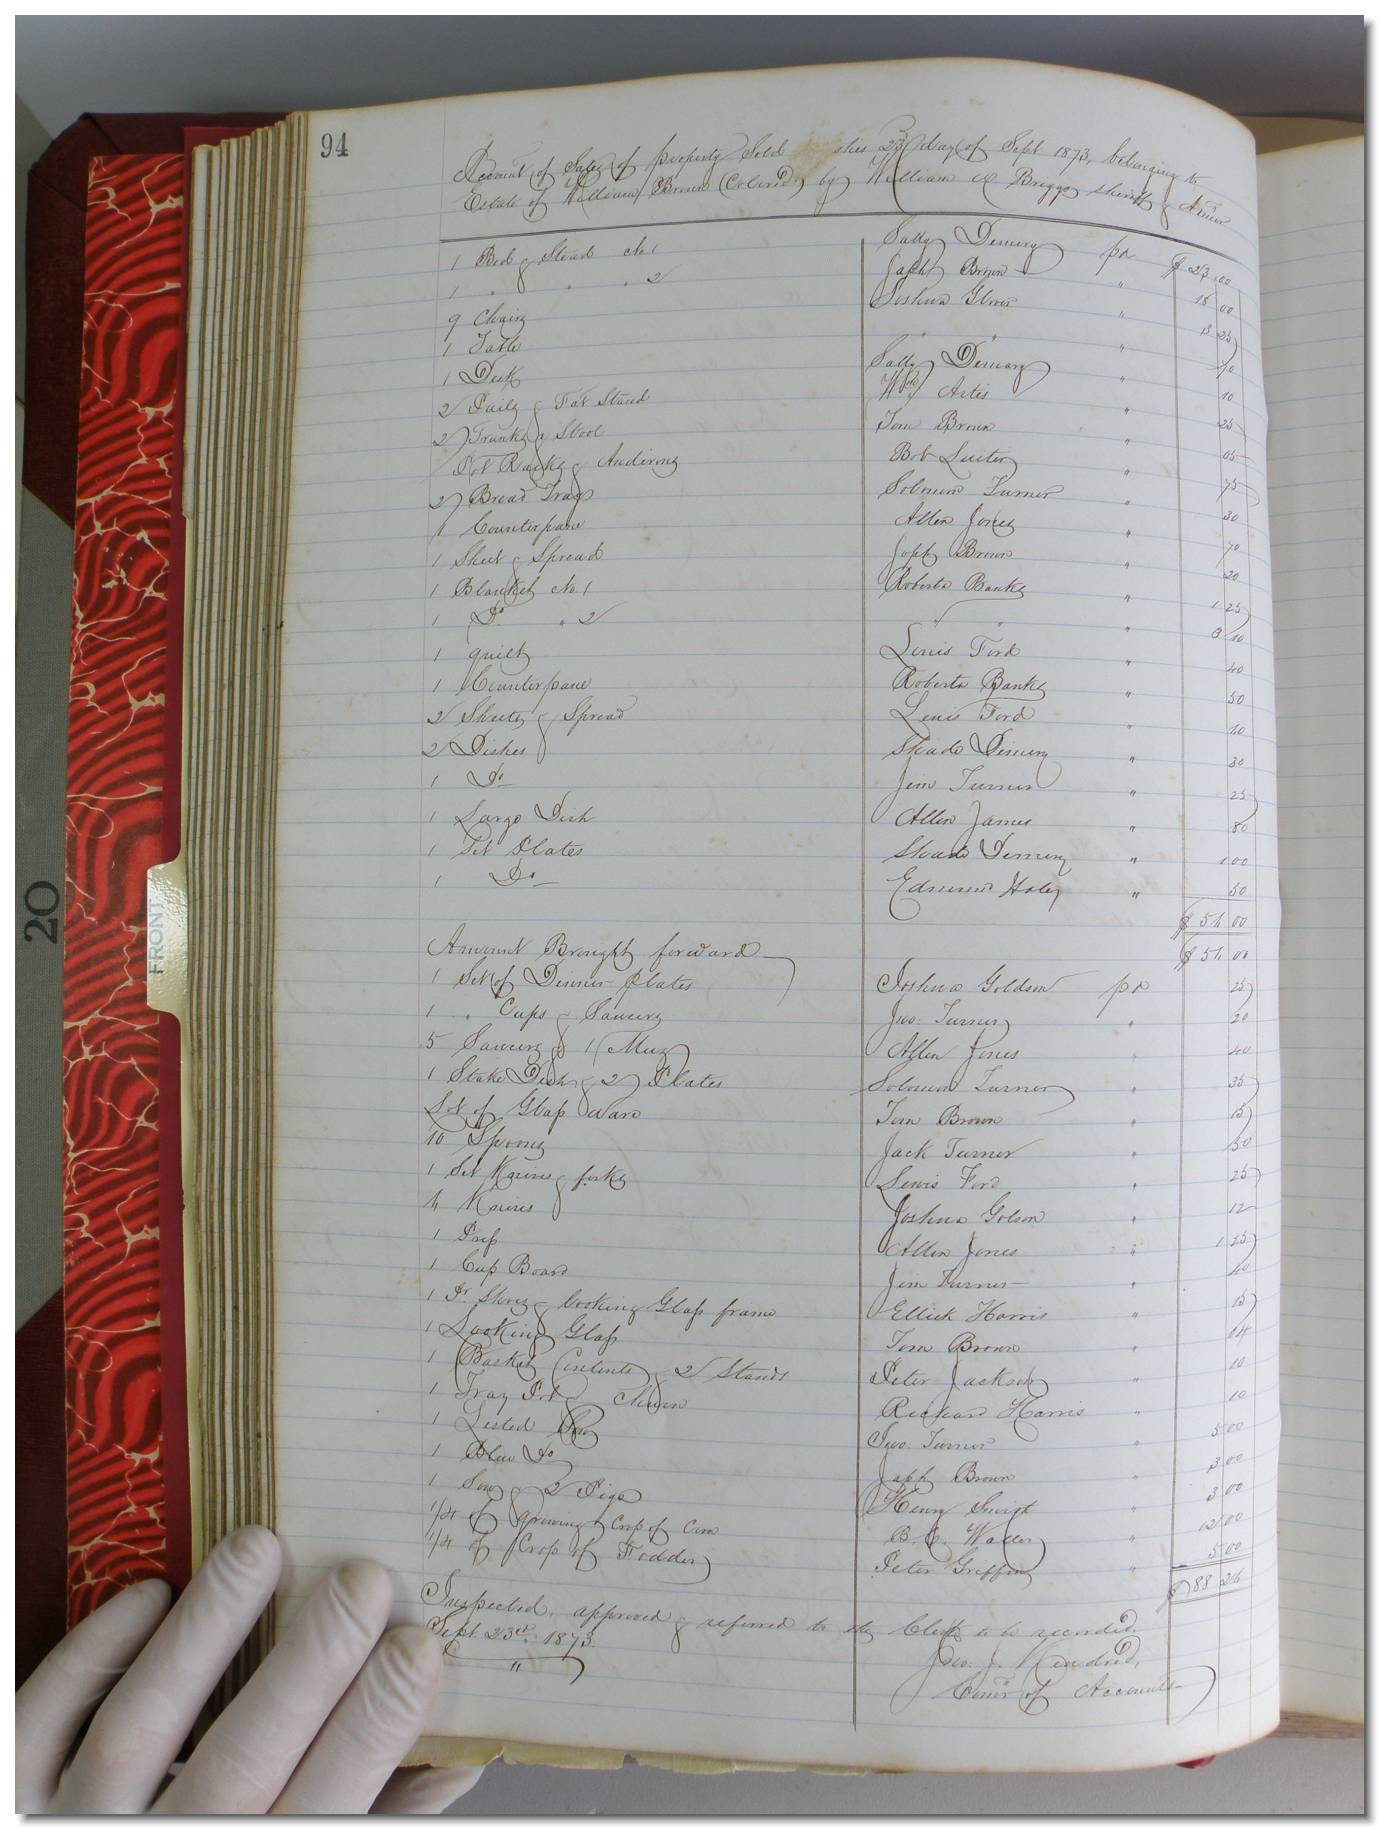 94
Account of Sales of property Sold this 23 day of Sept 1873, belonging to
Estate of William Brown (Colored) by William A. Briggs Sheriff & Admr
1 Bed & Stead No. 1 Sally Demery pd $23.00
1 " " " 2 Japh Brown " 18 00
9 Chairs Joshua Glover " 3 25
1 Table " " " 70
1 Desk Sally Demery " 10
2 Pails & Fat Stand Wm Artis " 25
2 Trunks & Stool Tom Brown " 05
Pot Racks & Andirons Bob Luiter " 75
2 Bread Trays Solomon Turner " 30
1 Counterpane Allen Jones " 70
1 Sheet & Spread Joph Brown " 20
1 Blanket No. 1 Roberta Banks " 1 25
1 Do " 2 " " " 3 10
1 quilt Lewis Ford " 40
1 Counterpane Roberta Banks " 50
2 Sheets & Spread Lewis Ford " 10
2 Dishes Shade Demery " 30
1 Do Jim Turner " 25
1 Large Dish Allen James " 80
1 Set Plates Shade Demery " 1 00
1 Do Edmund Holey " 50
$54 00
Amount Brought forward $54 00
1 Set of Dinner plates Joshua Goldson pd 25
1 " Cups & Saucers Jno. Turner " 20
5 Saucers & 1 Mug Allen Jones " 40
1 Stake Dish & 2 Plates Solomon Turner " 35
Lot of Glass Ware Tom Brown " 15
10 Spoons Jack Turner " 50
1 Set Knives & forks Lewis Ford " 25
4 Knives Joshua Golson " 12
1 Press Allen Jones " 1 25
1 Cup Board Jim Turner " 40
1 Pr Shoes & Looking Glass frame Ellick Harris " 15
1 Looking Glass Tom Brown " 04
1 Basket Contents & 2 Stands Peter Jackson " 10
1 Tray Pot & Churn Richard Harris " 10
1 Listed Sow Jno. Turner " 5 00
1 Blue Do Japh Brown " 3 00
1 Sow & 2 Pigs Henry Swigh " 3 00
1/4 of growing Crop of Corn B. C. Waller " 12 00
1/4 of Crop of Fodder Peter Griffin " 5 00
$88 26
Inspected, approved & referred to the Clerk to be recorded.
Sept. 23rd 1873. Jno. J. Kindred,
" Comr of Accounts
FRONT
20